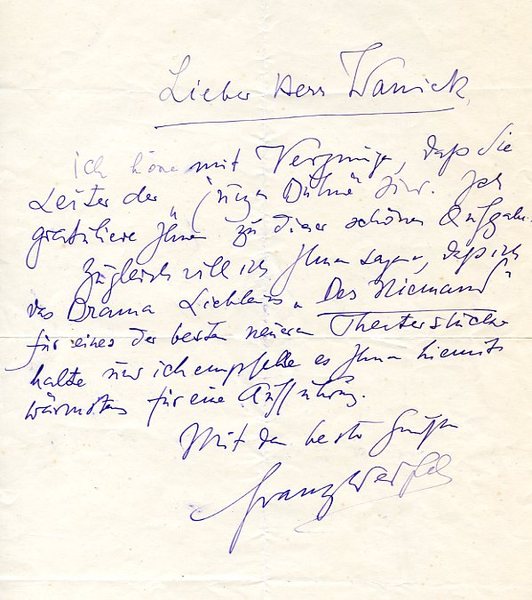 Lieber Herr
Ich höre mit Vergnügen, daß Sie
Leiter der „Jungen Bühne" sind. Ich
gratuliere Ihnen zu dieser schönen Aufgabe.
Zugleich will ich Ihnen sagen, daß ich
das Drama Liebleins „Der Niemand"
für eines der besten neueren Theaterstücke
halte und ich empfehle es Ihnen hiemit
wärmstens für eine Aufführung.
Mit den besten Grüßen
Franz Werfel